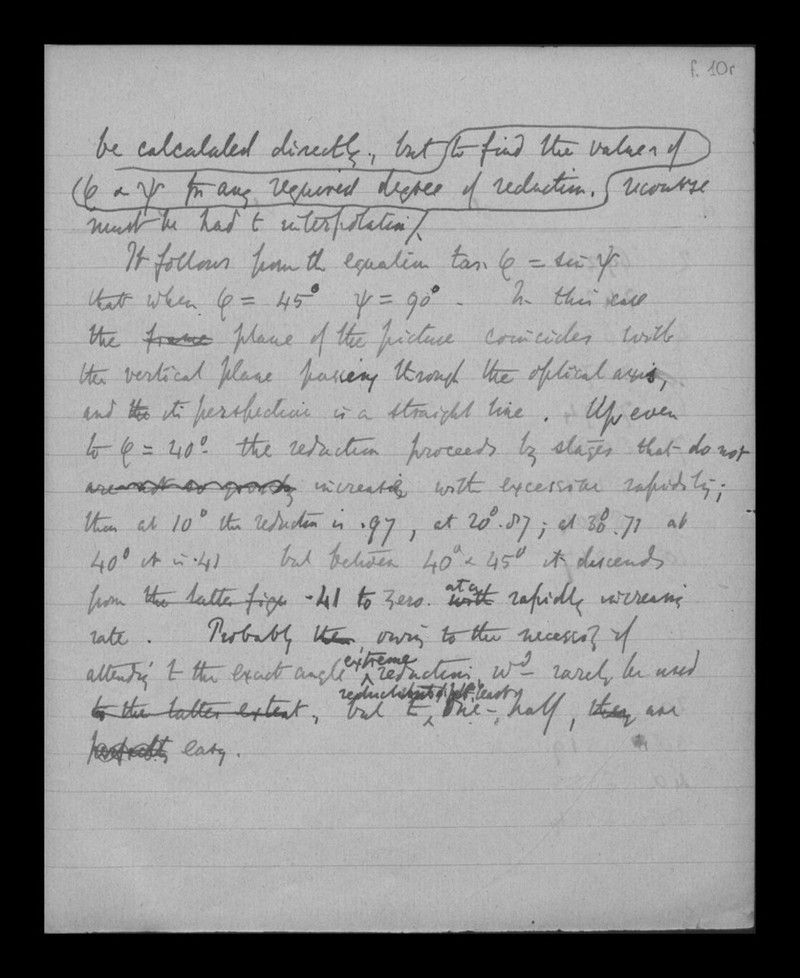 f. 10r
be calculated directly, but to find the values of
φ & ψ for any required degree of reduction, recourse
must be had to interpolation.
It follows from the equation tan. φ = sin ψ
that when φ = 45° ψ = 90°. In this case
the frame plane of the picture coincides with
the vertical plane passing through the optical axis,
and the its perspective is a straight line. Up even
to φ = 40° the reduction proceeds by stages that do not
are not so increase with excessive rapidity;
thus at 10° the reduction is .97, at 20° .87; at 30° .71 at
40° it is .41 but between 40° & 45° it descends
from the latter figure .41 to zero.
at a
with rapidly increasing
rate. Probably owing to the necessity of
attending to the exact angle
extreme
reductions wd rarely be used
to the latter extent, but to one-half, they are
perfectly easy.